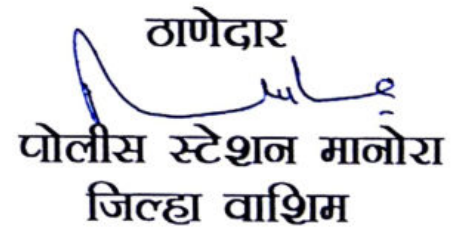 ठाणेदार
पोलीस स्टेशन मानोरा
जिल्हा वाशिम